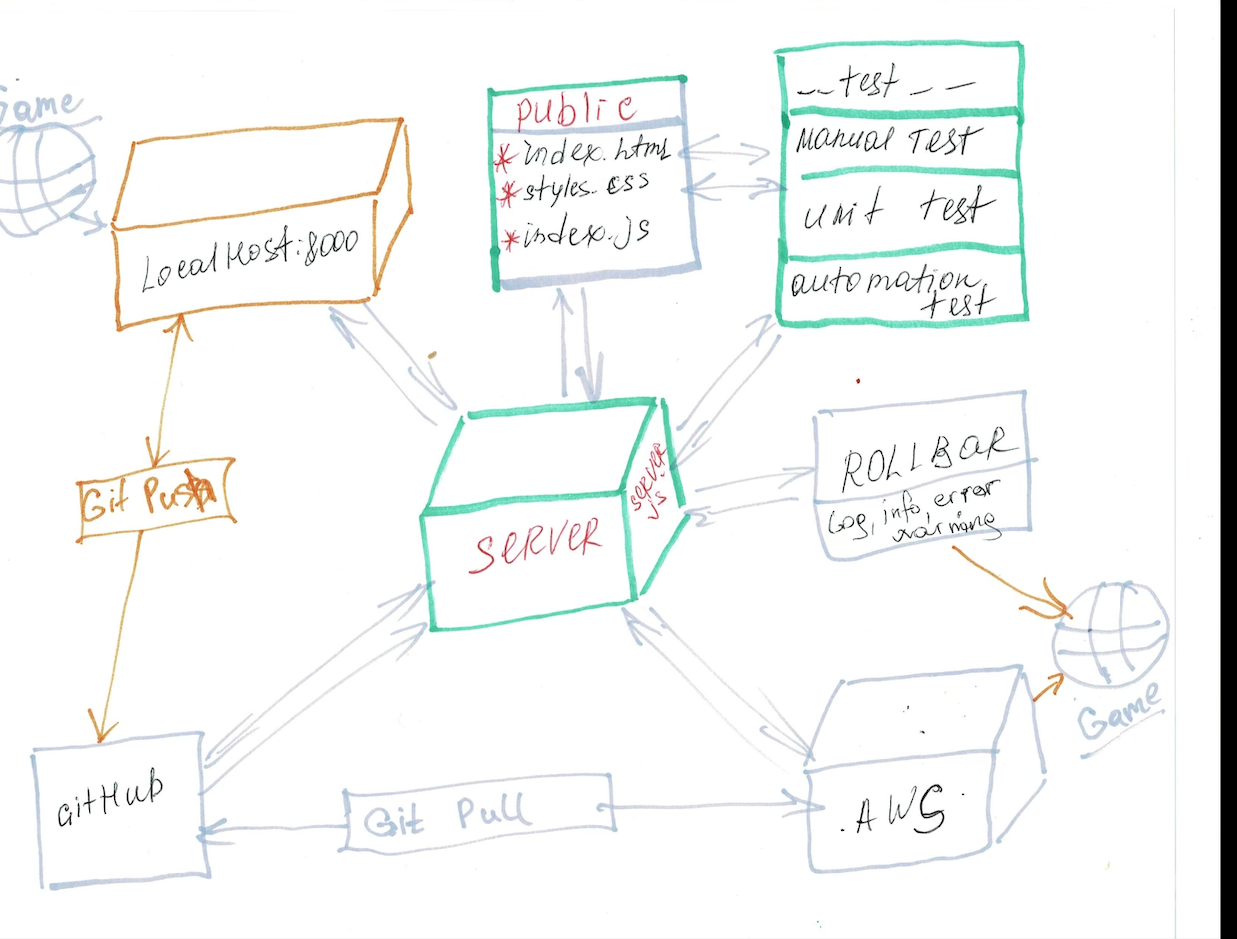 Game
LocalHost:8000
public
*index.html
*styles.css
*index.js
__test__
Manual Test
unit test
automation
test
Git Push
SERVER
SERVER
js
ROLLBAR
Log, info, error
warning
Game
gitHub
Git Pull
AWS